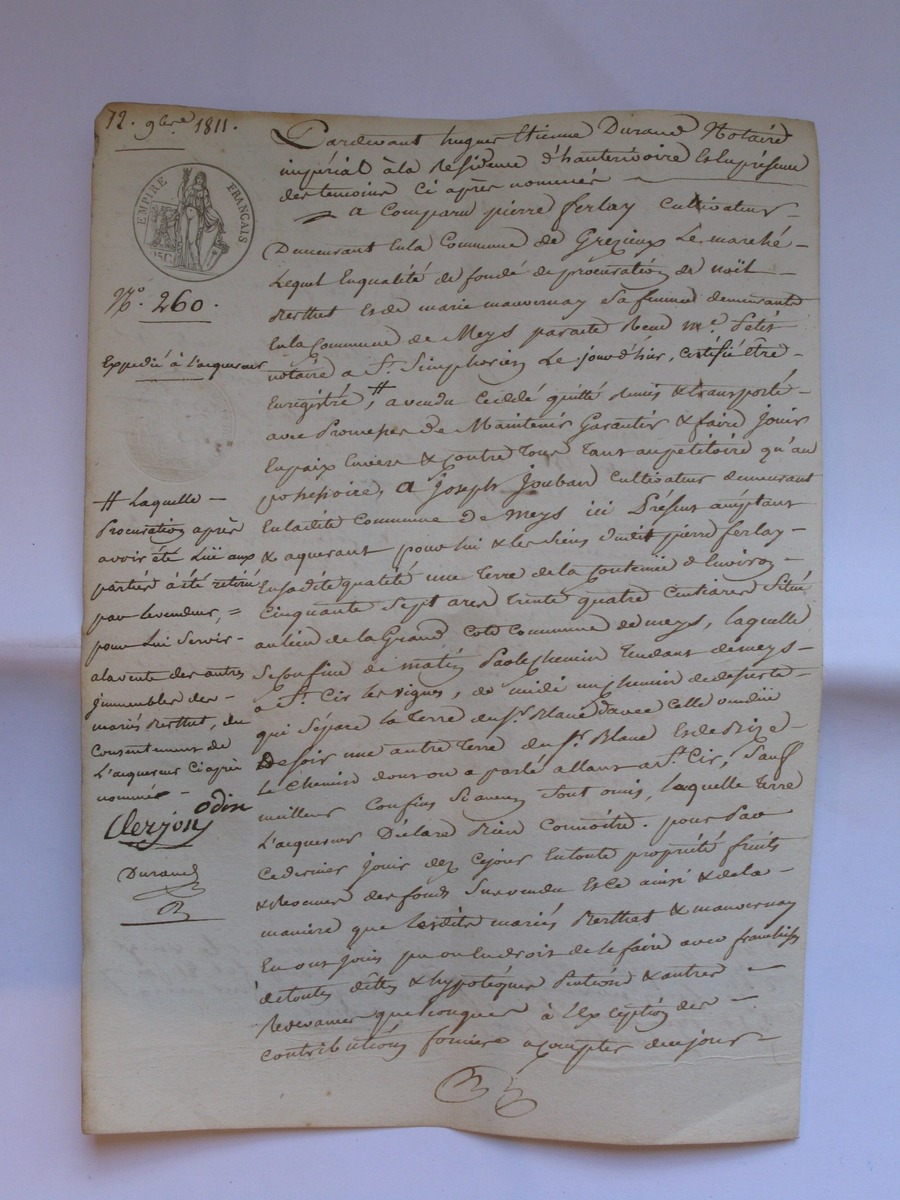 12. 9bre 1811.
EMPIRE FRANÇAIS
No. 260.
Expedié à l'acquereur
Pardevant hugues Etienne Durand Notaire
impérial à la Résidence d'hauterivoire Et en présence
des temoins ci après nommés
a Comparu pierre ferlay Cultivateur
Demeurant En la Commune de Grezieux Le marché
Lequel En qualité de fondé de procuration de noël
Berthet Et de marie mauvernay Sa femme demeurants
En la Commune de Meys passée devant Me. Petit
notaire a St. Simphorien Le jour d'hier, certifié être
Enregistré, # a vendu Cédé quitté Remis & transporté
avec Promesses de Maintenir Garantir & faire jouir
En paix Envers & contre tous tant au petitoire qu'au
possessoire, a Joseph Jouban Cultivateur demeurant
En ladite Commune de Meys ici Présent acceptant
& aquerant pour lui & les Siens dudit pierre ferlay
En sadite qualité une Terre de la Contenue d'Environ
Cinquante Sept ares trente quatre Centiares Située
au lieu de la Grand Cote Commune de meys, laquelle
Se confine de matin Par le chemin tendant de meys
a St. Cir les vignes, de midi un chemin de desserte
qui Sépare la terre du Sr. Blanc d'avec Celle vendue
De soir une autre terre du Sr. Blanc Et de Bize
Le Chemin dont on a parlé allant a St. Cir, Sauf
meilleurs Confins Si aucun Sont omis, laquelle Terre
L'acquereur Déclare Bien Connoitre. pour Par
Ce dernier jouir dez Cejour En toute propriété fruits
& Revenus des fonds Sus vendu Et ce ainsi & de la
maniere que lesdits mariés Berthet & mauvernay
En ont joui pu ou En droit de le faire avec franchise
de toutes dettes & hypotéques Pentions & autres
Redevances quelconques à l'Exception des
Contributions foncière a compter de ce jour
# Laquelle
Procuration après
avoir été Luë aux
parties à été retiré
par le vendeur,
pour Lui Servir
a la vente des autres
Immeubles des
mariés Berthet, du
Consentement de
L'acquereur Ci après
nommé
Clerjon odin
Durand